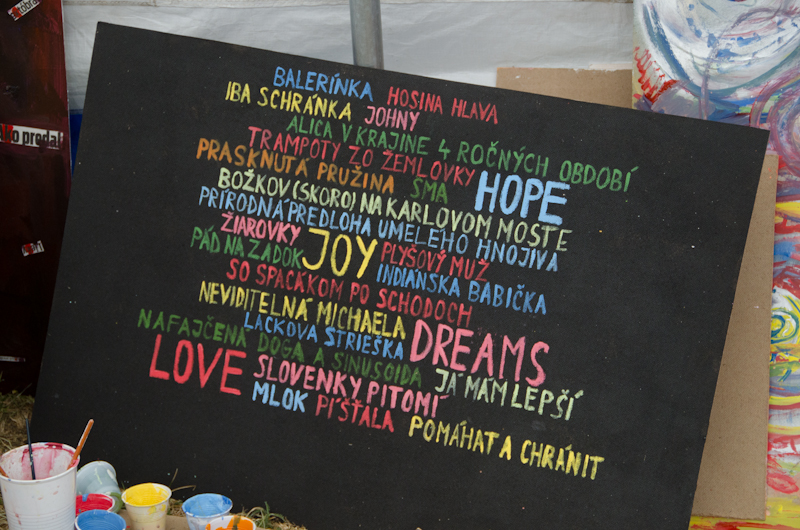 BALERÍNKA HOSINA HLAVA
IBA SCHRÁNKA JOHNY
ALICA V KRAJINE 4 ROČNÝCH OBDOBÍ
TRAMPOTY ZO ŽEMLOVKY
PRASKNUTÁ PRUŽINA ŠMA HOPE
BOŽKOV (SKORO) NA KARLOVOM MOSTE
PRÍRODNÁ PREDLOHA UMELÉHO HNOJIVA
ŽIAROVKY JOY PLYŠOVÝ MUŽ
PÁD NA ZADOK INDIÁNSKA BABIČKA
SO SPACÁKOM PO SCHODOCH
NEVIDITEĽNÁ MICHAELA
LACKOVA STRIEŠKA DREAMS
NAFAJČENÁ DOGA A SINUSOIDA
LOVE SLOVENKY PITOMÍ JA MÁM LEPŠÍ
MLOK PÍŠŤALA POMÁHAT A CHRÁNIT
predaj